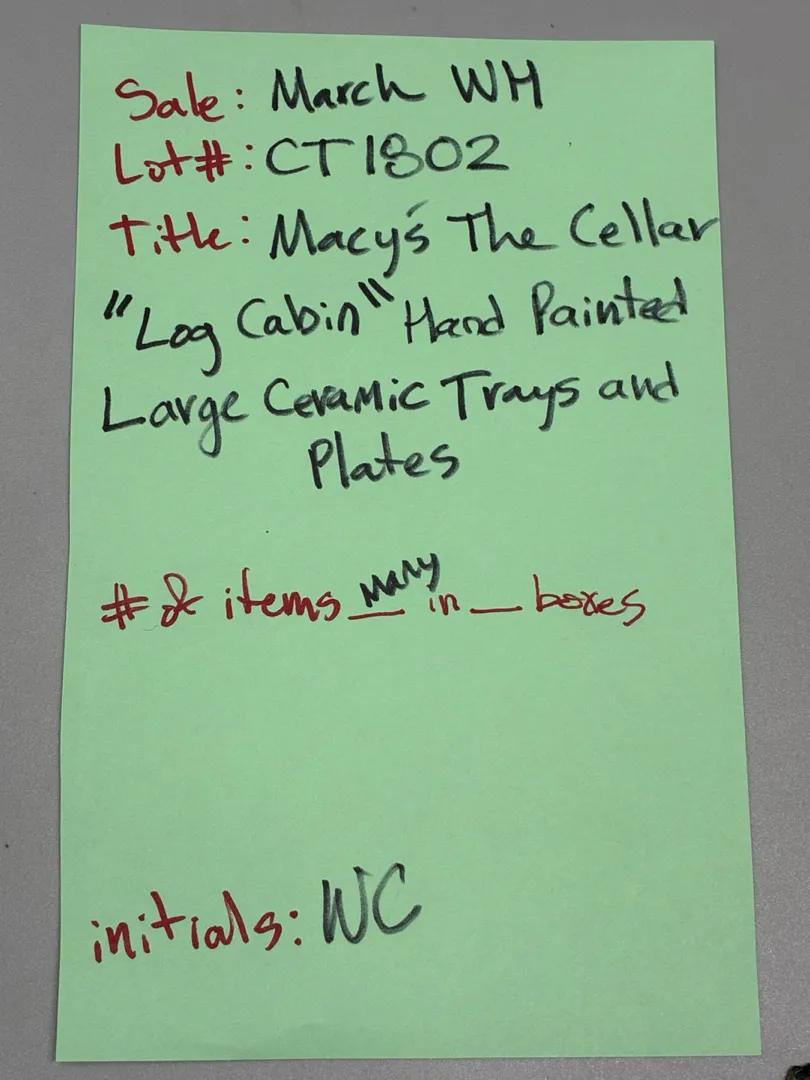 Sale: March WH
Lot#: CT1802
Title: Macy's The Cellar
"Log Cabin" Hand Painted
Large Ceramic Trays and
Plates
# of items many in __ boxes
initials: WC